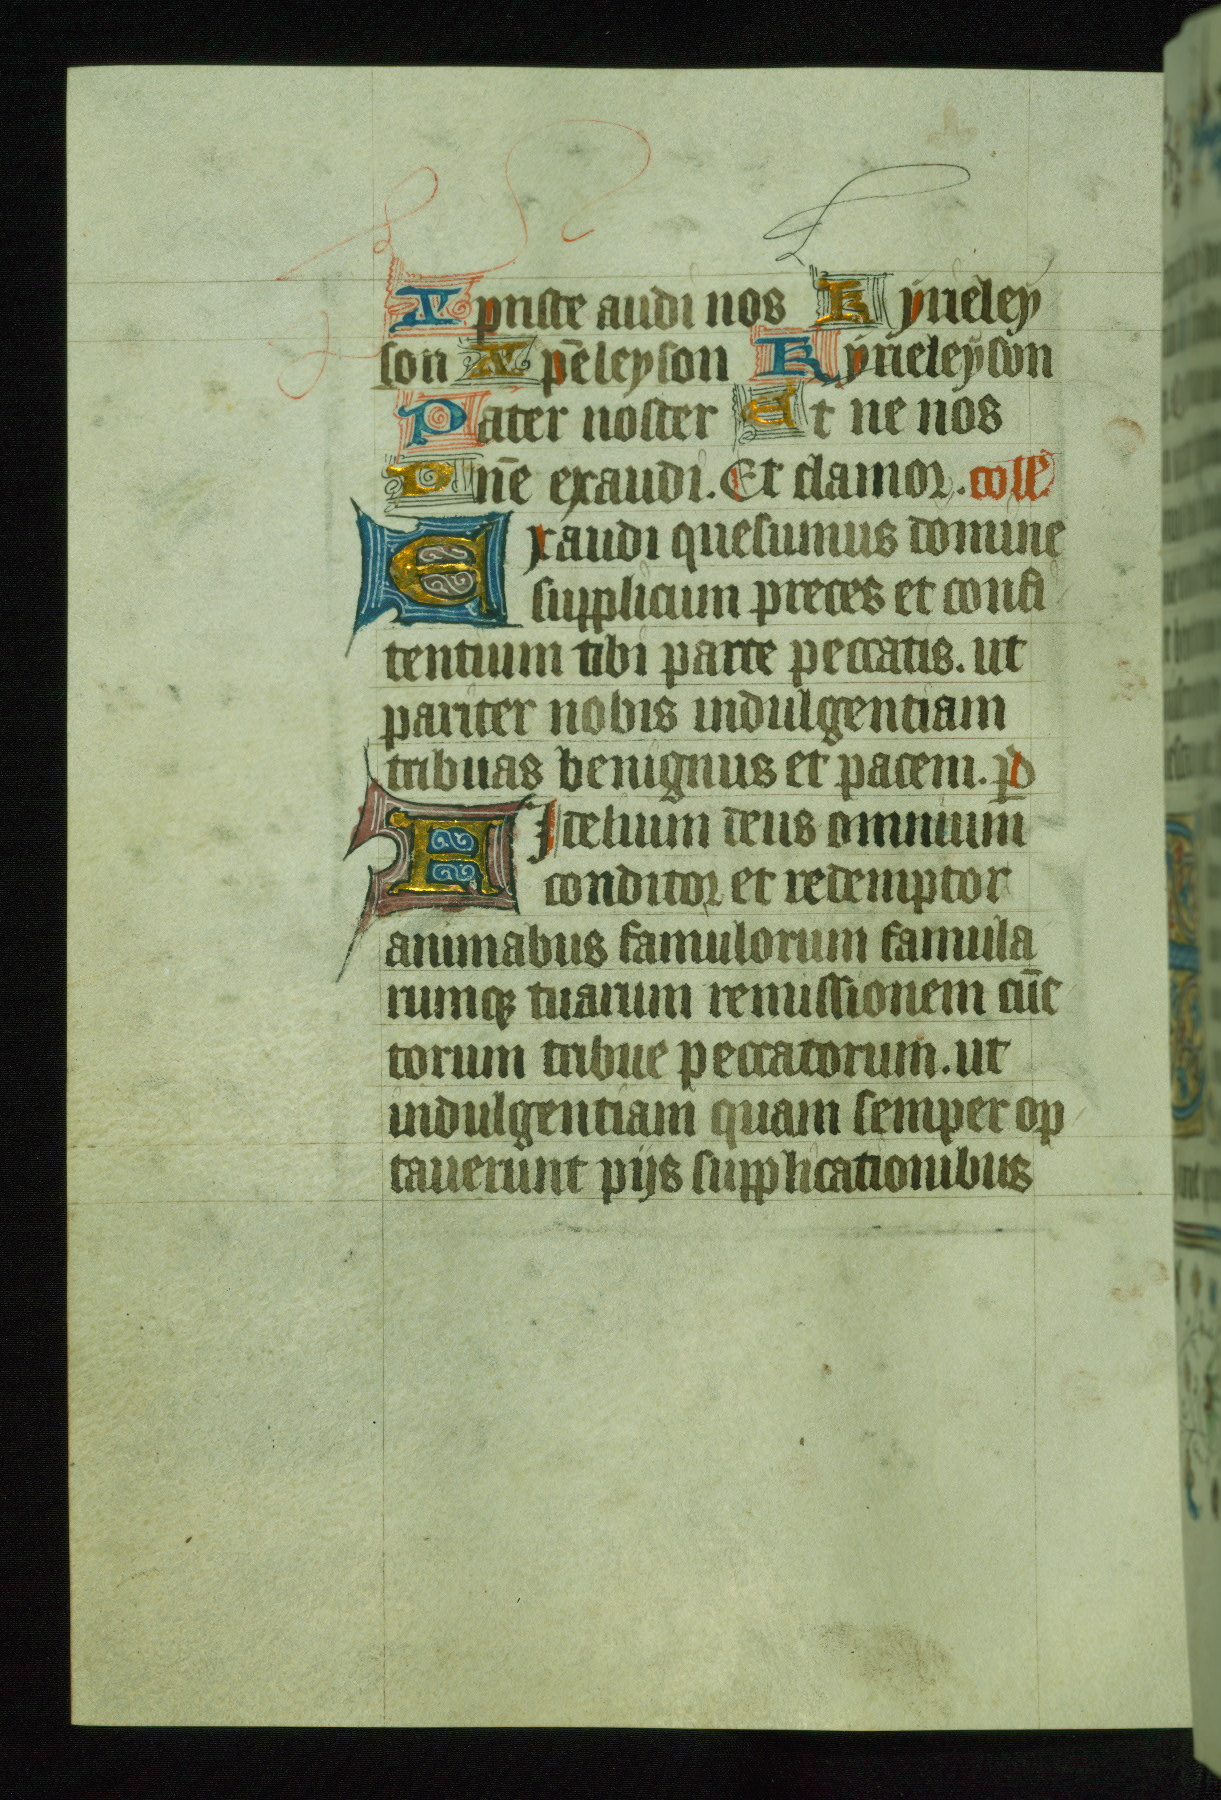 Xpriste audi nos Kyrieley
son Xp̄eleyson Kyrieleyson
Pater noster Et ne nos
Dn̄e exaudi. Et clamor. coll̄e
Exaudi quesumus domine
supplicum preces et confi
tentium tibi parce peccatis. ut
pariter nobis indulgentiam
tribuas benignus et pacem. p̱d
Fidelium deus omnium
conditor et redemptor
animabus famulorum famula
rumqꝫ tuarum remissionem cūc
torum tribue peccatorum. ut
indulgentiam quam semper op
tauerunt pijs supplicationibus